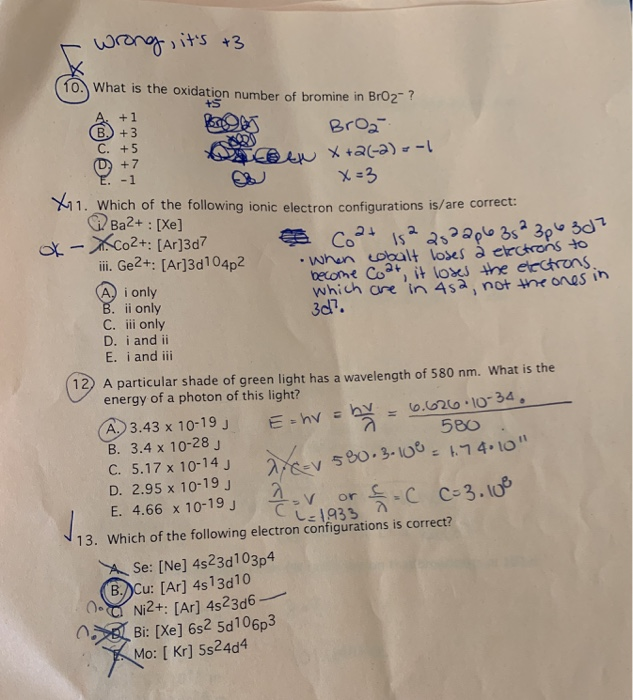 wrong, it's +3
10. What is the oxidation number of bromine in BrO2- ?
+5
A. +1
B. +3
C. +5
D. +7
E. -1
BrO2-
x +2(-2) = -1
x = 3
11. Which of the following ionic electron configurations is/are correct:
i. Ba2+ : [Xe]
ok - ii. Co2+: [Ar]3d7
iii. Ge2+: [Ar]3d104p2
Co2+ 1s2 2s2 2p6 3s2 3p6 3d7
• when cobalt loses 2 electrons to
become Co2+, it loses the electrons
which are in 4s2, not the ones in
3d7.
A. i only
B. ii only
C. iii only
D. i and ii
E. i and iii
12. A particular shade of green light has a wavelength of 580 nm. What is the
energy of a photon of this light?
A. 3.43 x 10-19 J
B. 3.4 x 10-28 J
C. 5.17 x 10-14 J
D. 2.95 x 10-19 J
E. 4.66 x 10-19 J
E = hv = hv/λ = 6.626·10-34 · / 580
580·3·108 = 1.74·1011
λ/C = v or C/λ = C C=3·108
= 1933
13. Which of the following electron configurations is correct?
A. Se: [Ne] 4s23d103p4
B. Cu: [Ar] 4s13d10
C. Ni2+: [Ar] 4s23d6
D. Bi: [Xe] 6s2 5d106p3
E. Mo: [ Kr] 5s24d4